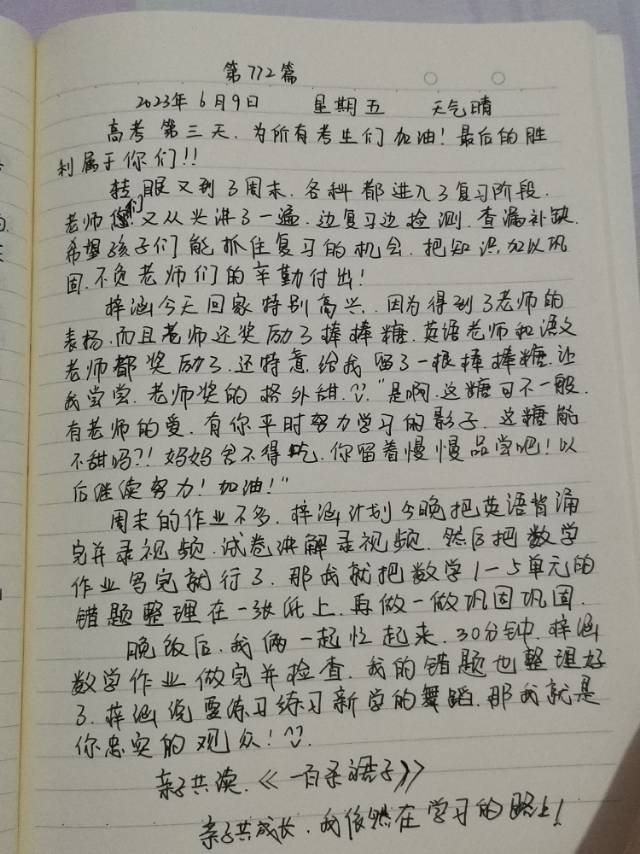 第772篇
2023年6月9日 星期五 天气晴
高考第三天,为所有考生们加油!最后的胜
利属于你们!!
转眼又到了周末,各科都进入了复习阶段,
老师们又从头讲了一遍,边复习边检测,查漏补缺.
希望孩子们能抓住复习的机会,把知识加以巩
固,不负老师们的辛勤付出!
梓涵今天回家特别高兴,因为得到了老师的
表扬,而且老师还奖励了棒棒糖,英语老师和语文
老师都奖励了,还特意给我留了一根棒棒糖,让
我尝尝,老师奖的格外甜."是啊,这糖可不一般,
有老师的爱,有你平时努力学习的影子,这糖能
不甜吗?!妈妈舍不得吃,你留着慢慢品尝吧!以
后继续努力!加油!"
周末的作业不多,梓涵计划今晚把英语背诵
完并录视频,试卷讲解录视频,然后把数学
作业写完就行了,那我就把数学1-5单元的
错题整理在一张纸上,再做一做巩固巩固.
晚饭后,我俩一起忙起来,30分钟,梓涵
数学作业做完并检查,我的错题也整理好
了,梓涵说要练习练习新学的舞蹈,那我就是
你忠实的观众!
亲子共读,《一百条裙子》
亲子共成长,我依然在学习的路上!